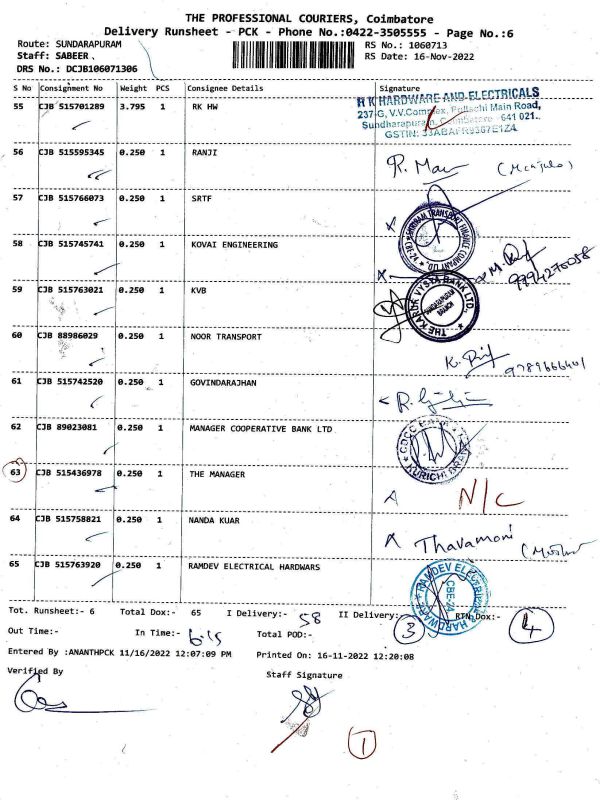 THE PROFESSIONAL COURIERS, Coimbatore
Delivery Runsheet - PCK - Phone No.:0422-3505555 - Page No.:6
Route: SUNDARAPURAM RS No.: 1060713
Staff: SABEER . RS Date: 16-Nov-2022
DRS No.: DCJB106071306
S No Consignment No Weight PCS Consignee Details Signature
55 CJB 515701289 3.795 1 RK HW
R K HARDWARE AND ELECTRICALS
237-G, V.V.Complex, Pollachi Main Road,
Sundharapuram, Coimbatore - 641 021.
GSTIN: 33ABAFR9367E1Z4
56 CJB 515595345 0.250 1 RANJI
57 CJB 515766073 0.250 1 SRTF
58 CJB 515745741 0.250 1 KOVAI ENGINEERING
59 CJB 515763021 0.250 1 KVB
THE KARUR VYSYA BANK LTD.
SUNDARAPURAM
BRANCH
60 CJB 88986029 0.250 1 NOOR TRANSPORT
9789666401
61 CJB 515742520 0.250 1 GOVINDARAJHAN
62 CJB 89023081 0.250 1 MANAGER COOPERATIVE BANK LTD
63 CJB 515436978 0.250 1 THE MANAGER N/C
64 CJB 515758821 0.250 1 NANDA KUAR
Thavamoni
65 CJB 515763920 0.250 1 RAMDEV ELECTRICAL HARDWARS
RAMDEV ELECTRICAL
HARDWARE
CBE-24
Tot. Runsheet:- 6 Total Dox:- 65 I Delivery:- 58 II Delivery:- 3 RTN Dox:- 4
Out Time:- In Time:- 6:15 Total POD:-
Entered By :ANANTHPCK 11/16/2022 12:07:09 PM Printed On: 16-11-2022 12:20:08
Verified By Staff Signature
1